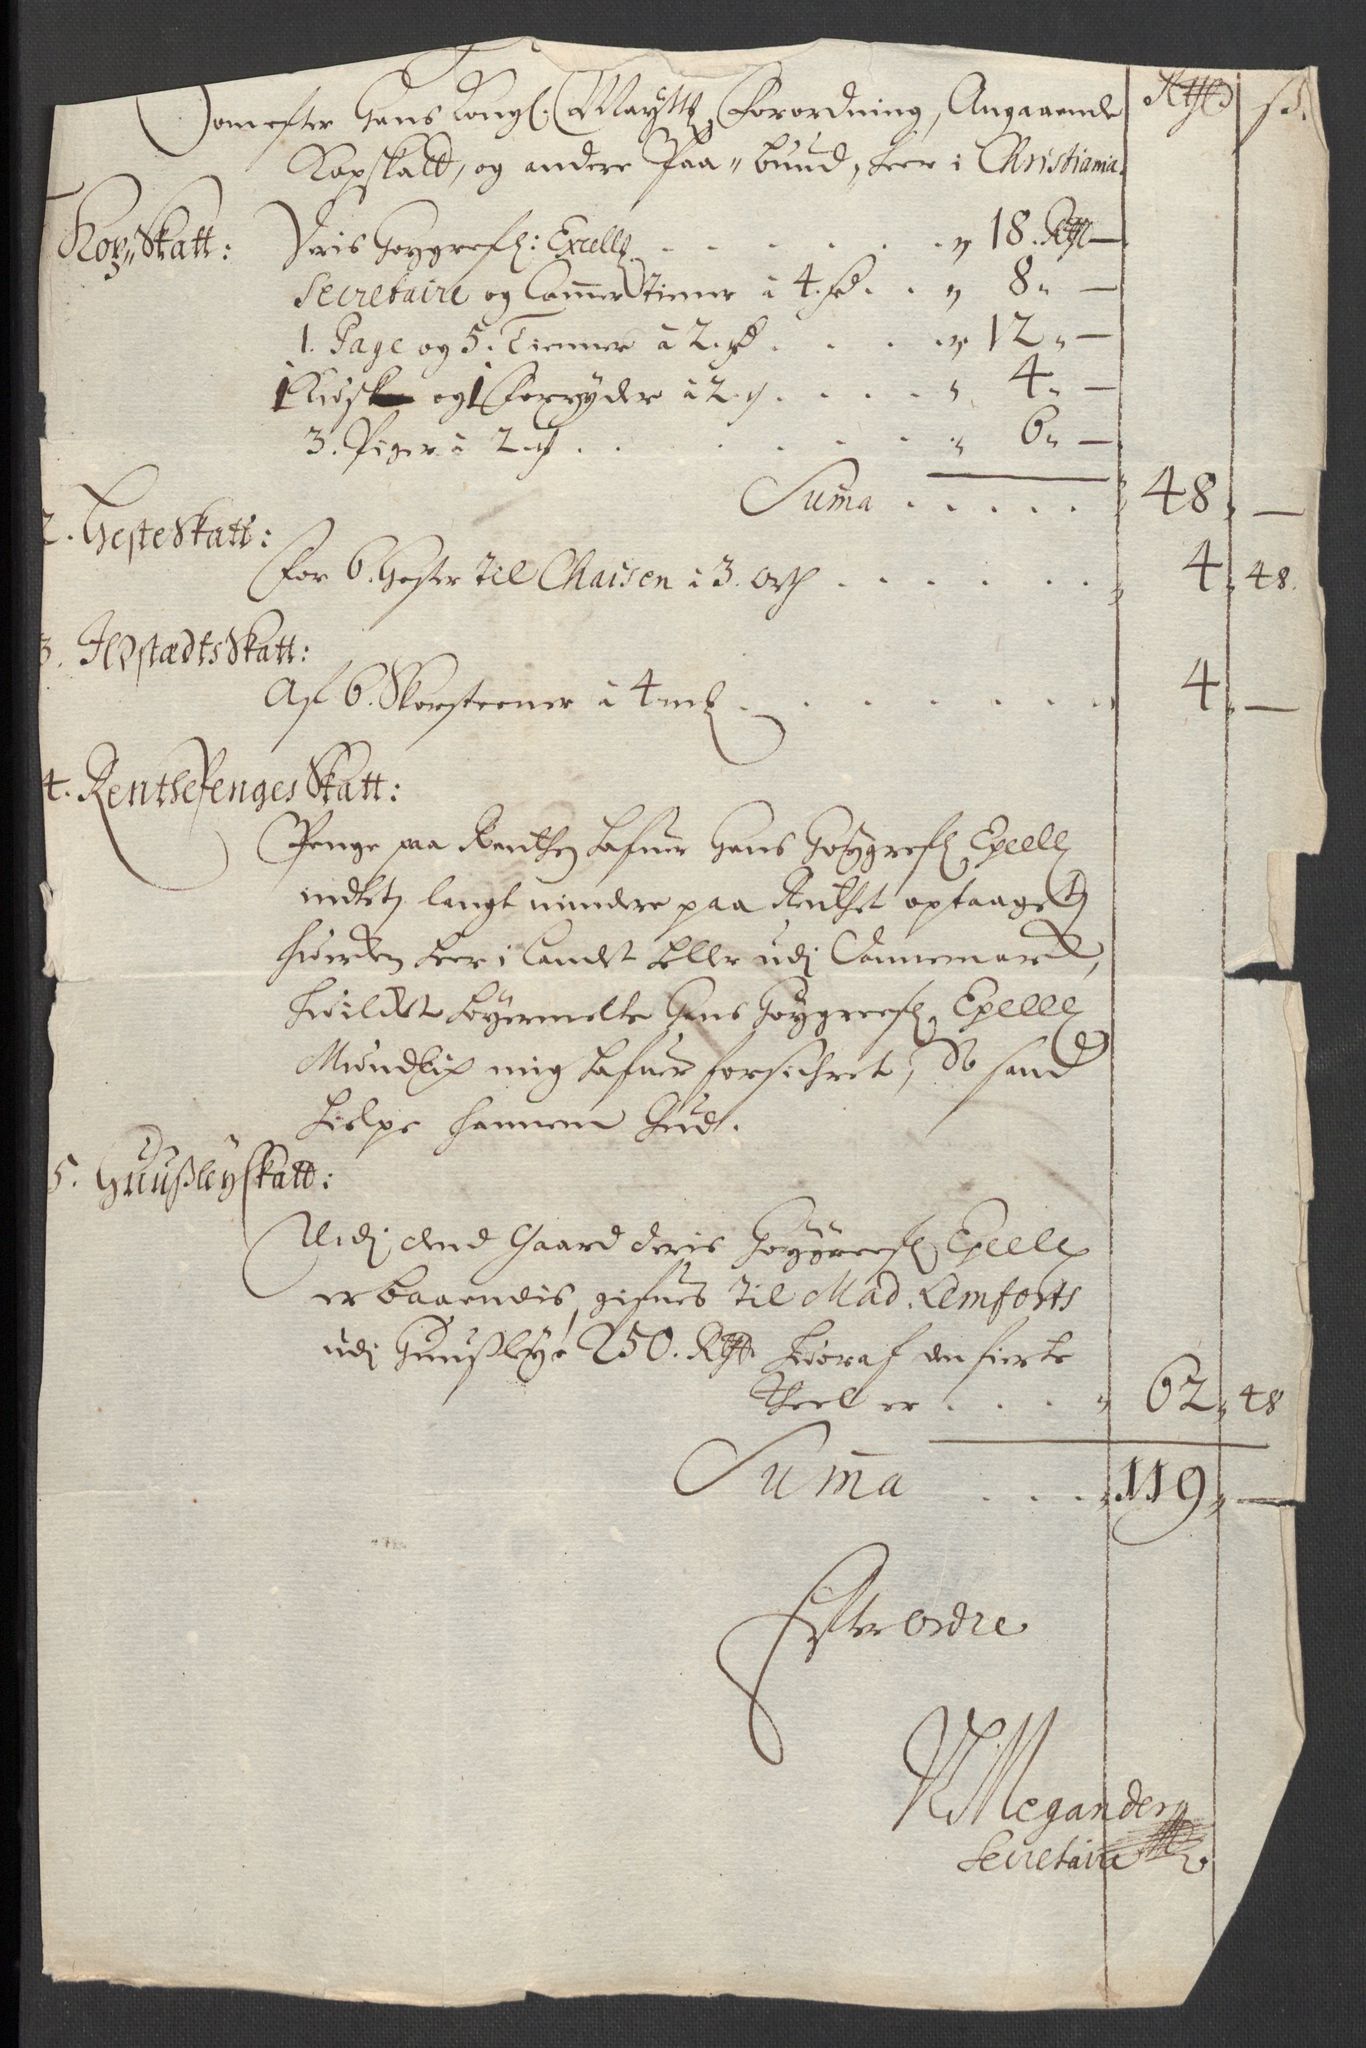 Som efter Hans Kongl: Mayttz Forordning, Angaaende Rthl sk.
Kopskatt, og andere Paa„buud, heer i Christiania.
Kop„Skatt: Deris Høygrefl: Excellz . . . . . . „ 18. Rthl —
Secretaire og Cammertiener à 4. rd . . „ 8„ —
1. Page og 5. Tienner à 2. rd . . . . „ 12„ —
1 Kudsk og 1 Forryder à 2. rd . . . . „ 4„ —
3. Piger à 2. rd . . . . . . „ 6„ —
Suma . . . . . „ 48„ —
2. HesteSkatt:
For 6. Hester til Chaisen à 3. Ort . . . . . . „ 4„ 48.
3. IldstædtsSkatt:
Af 6. Skorsteener à 4 mk . . . . . . . „ 4„ —
4. RenthePenges Skatt:
Penge paa Renthe hafuer Hans Høygrefl Excellz
indtet, langt mindere paa Renthet optaaget,
hverken heer i Landet heller udj Dannemarck,
hvilket høyermelte Hans Høygreefl. Excellz
Mundtlig mig hafuer forsichret, So sand
hielpe hannem Gud.
5. HuußleySkatt:
Udj dend Gaard deris Høygreefl Excellz
er boaendis, gifues til Mad. Lemforts
udj Huußleye 250. Rthl. hvoraf den fierte
Deel er . . . . „ 62„ 48
Suma . . . „ 119„ —
Efter Ordre
Megander
Secretaire